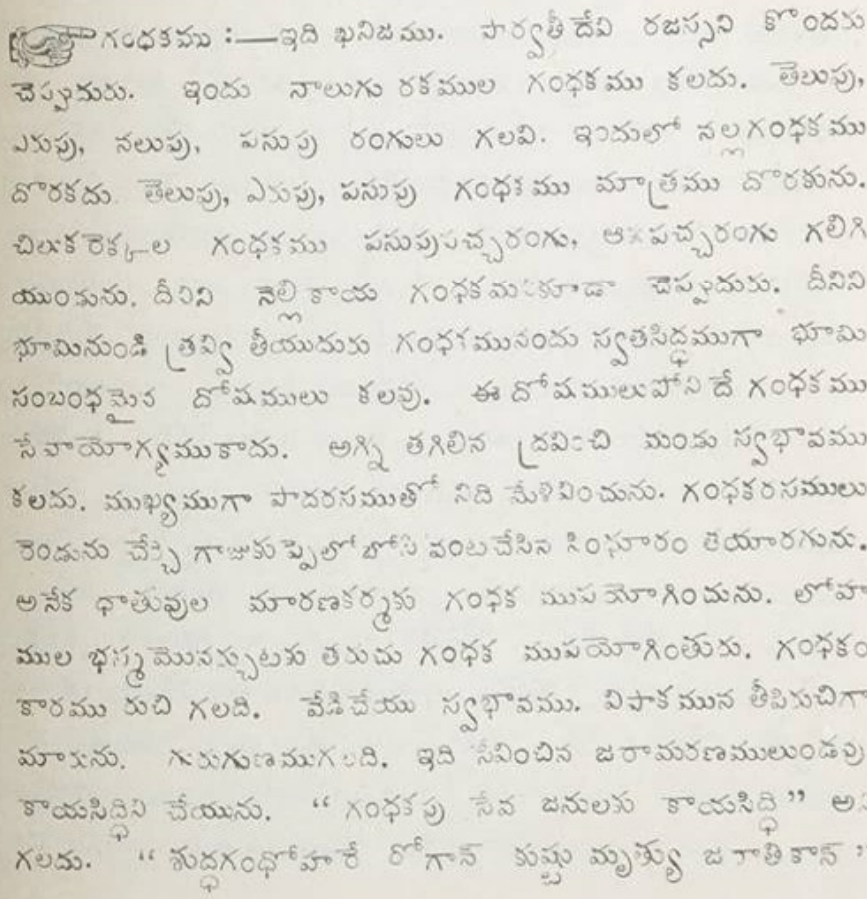 గంధకము :—ఇది ఖనిజము. పార్వతీ దేవి రజస్సని కొందరు
చెప్పుదురు. ఇందు నాలుగు రకముల గంధకము కలదు. తెలుపు,
ఎరుపు, నలుపు, పసుపు రంగులు గలవి. ఇందులో నల్లగంధకము
దొరకదు. తెలుపు, ఎరుపు, పసుపు గంధకము మాత్రము దొరకును.
చిలుకరెక్కల గంధకము పసుపుపచ్చరంగు, ఆకుపచ్చరంగు గలిగి
యుండును. దీనిని నెల్లికాయ గంధకమనికూడా చెప్పుదురు. దీనిని
భూమినుండి త్రవ్వి తీయుదురు గంధకమునందు స్వతసిద్ధముగా భూమి
సంబంధమైన దోషములు కలవు. ఈ దోషములుపోనిదే గంధకము
సేవాయోగ్యముకాదు. అగ్ని తగిలిన ద్రవించి మండు స్వభావము
కలదు. ముఖ్యముగా పాదరసముతో నిది మేళవించును. గంధకరసములు
రెండును చేర్చి గాజుకుప్పెలోబోసి వంటచేసిన సింధూరం తయారగును.
అనేక ధాతువుల మారణకర్మకు గంధక ముపయోగించును. లోహ
ముల భస్మమొనర్చుటకు తరుచు గంధక ముపయోగింతురు. గంధకం
కారము రుచి గలది. వేడిచేయు స్వభావము. విపాకమున తీపిరుచిగా
మారును. గురుగుణముగలది. ఇది సేవించిన జరామరణములుండవు
కాయసిద్ధిని చేయును. “గంధకపు సేవ జనులకు కాయసిద్ధి”
గలదు. “శుద్ధగంధోహరే రోగాన్ కుష్టు మృత్యు జరాతికాన్”